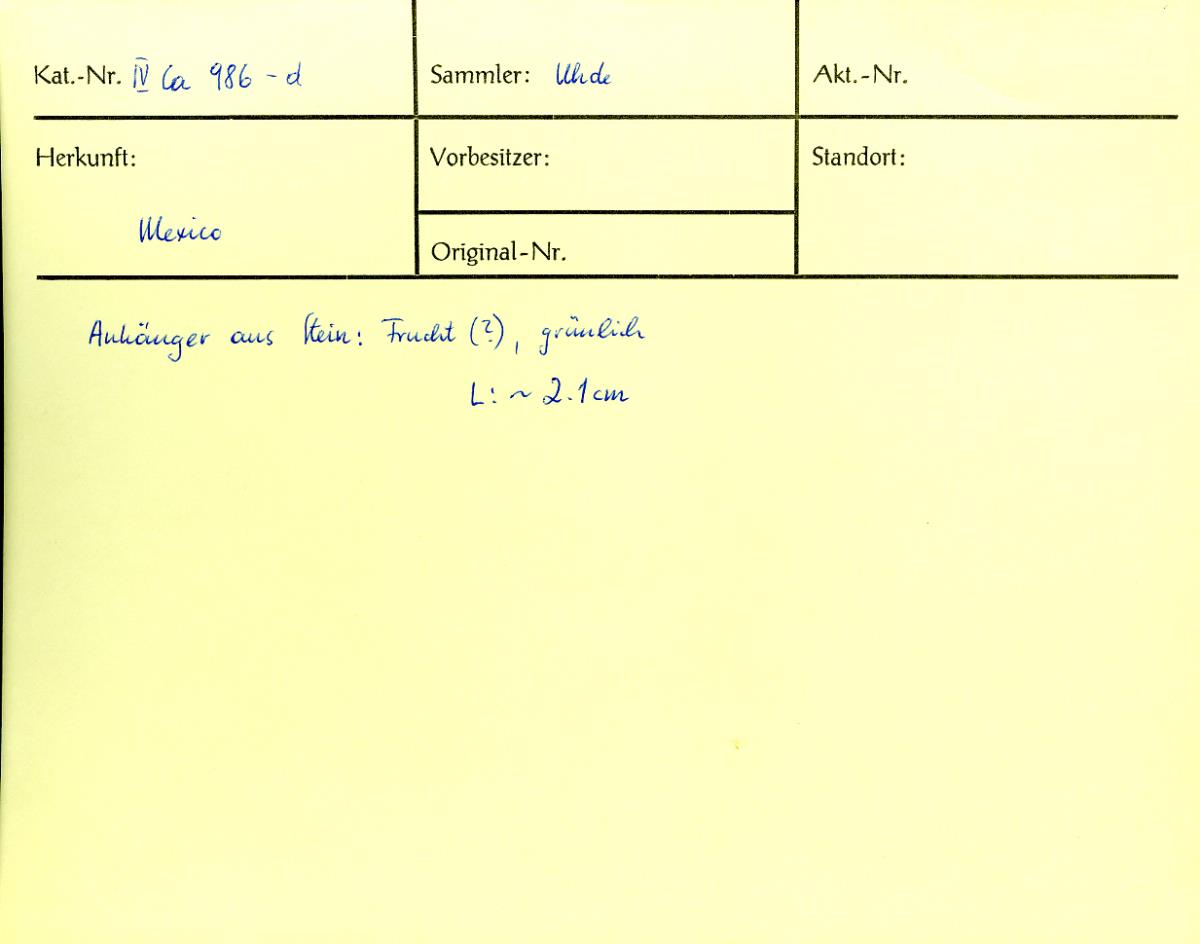 Kat.-Nr. IV Ca 986 - d
Sammler: Uhde
Akt.-Nr.
Herkunft:
Mexico
Vorbesitzer:
Original-Nr.
Standort:
Anhänger aus Stein: Frucht (?), grünlich
L: ~ 2.1 cm